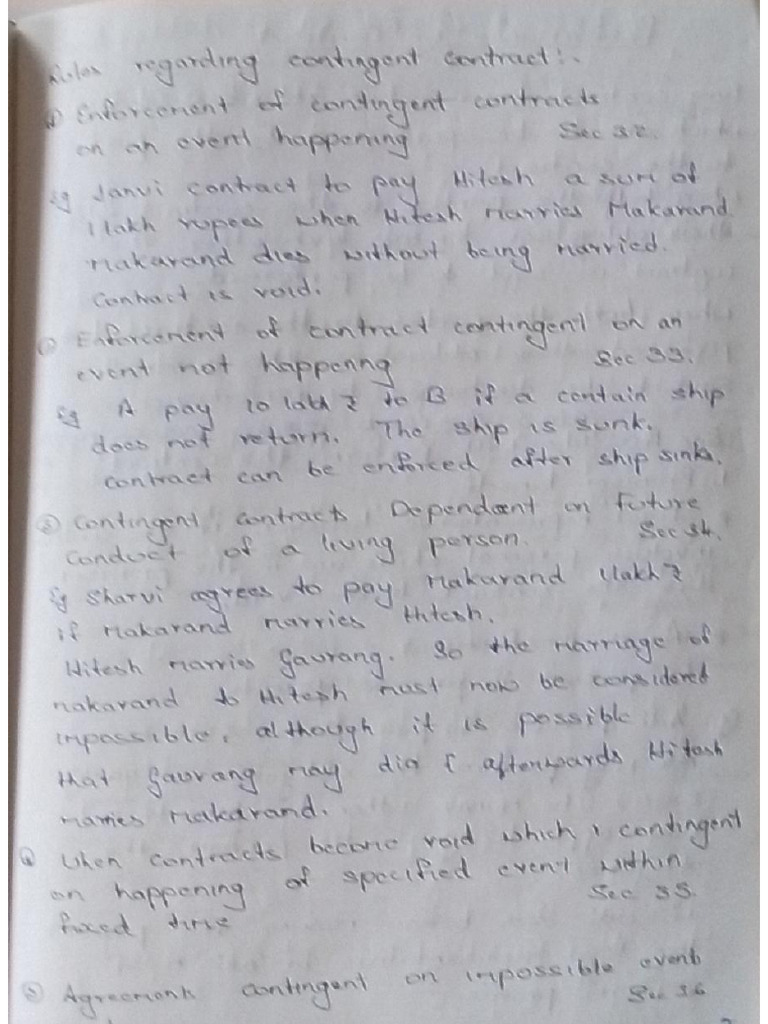 Rules regarding contingent contract:-
① Enforcement of contingent contracts
on an event happening Sec 32.
Eg Janvi contract to pay Hitesh a sum of
1 lakh rupees when Hitesh marries Makarand
Makarand dies without being married.
Contract is void.
② Enforcement of contract contingent on an
event not happenng Sec 33.
Eg A pay 10 lakh ₹ to B if a contain ship
does not return. The ship is sunk.
contract can be enforced after ship sinks.
③ Contingent contracts Dependent on future
conduct of a living person. Sec 34.
Eg Sharvi agrees to pay Makarand 1 lakh ₹
if Makarand marries Hitesh.
Hitesh marries Gaurang. So the marriage of
Makarand to Hitesh must now be considered
impossible, although it is possible
that Gaurang may die & afterwards Hitesh
marries Makarand.
④ When contracts become void which contingent
on happening of specified event within
fixed time Sec 35.
⑤ Agreements contingent on impossible event
Sec 36